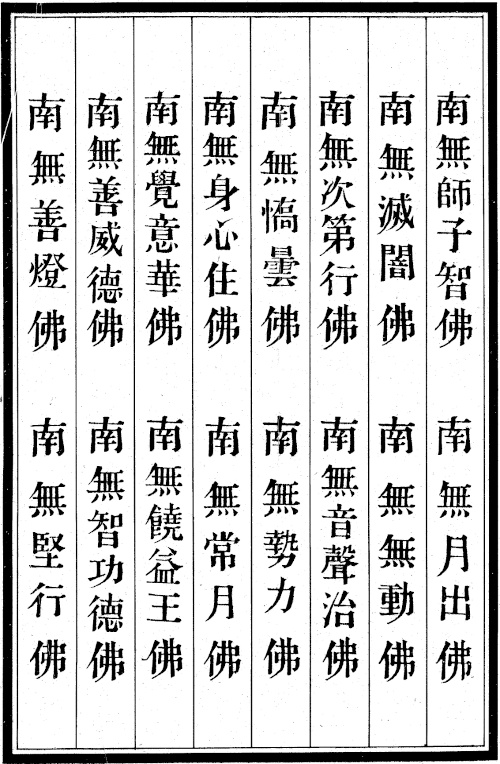 南無師子智佛 南無月出佛
南無滅闇佛 南無無動佛
南無次第行佛 南無音聲治佛
南無憍曇佛 南無勢力佛
南無身心住佛 南無常月佛
南無覺意華佛 南無饒益王佛
南無善威德佛 南無智功德佛
南無善燈佛 南無堅行佛